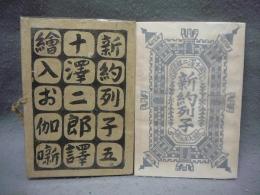 新約列子五
十澤二郎譯
繪入お伽噺
新約列子